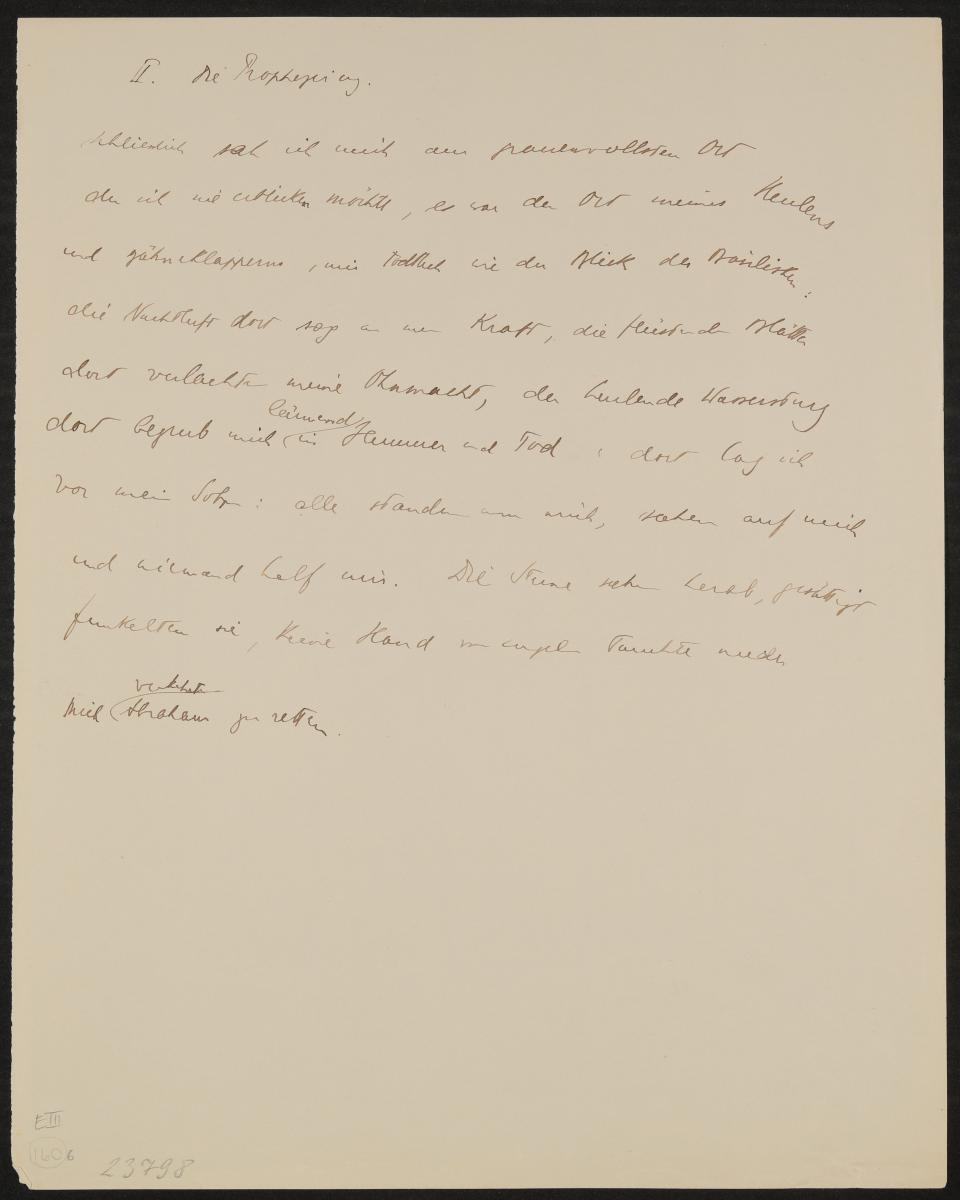 II. Die Prophezeiung.
schliesslich sah ich mich am grauenvollsten Ort
den ich nie erblicken möchte, es war der Ort meines Heulens
und Zähneklapperns, mir tödtlich wie der Blick des Basilisken:
die Nachtluft dort sog an mein Kraft, die flüsternden Blätter
dort verlachten meine Ohnmacht, der heulende Wassersturz
lärmend
dort begrub mich in Jammer und Tod: dort lag ich
vor mein Sohn: alle standen um mich, sahen auf mich
und niemand half mir. Die Sterne sahen herab, gesättigt
funkelten sie, keine Hand von Engeln tauchte nieder
verkehrten
mich Abraham zu retten.
E III
160 6
23798